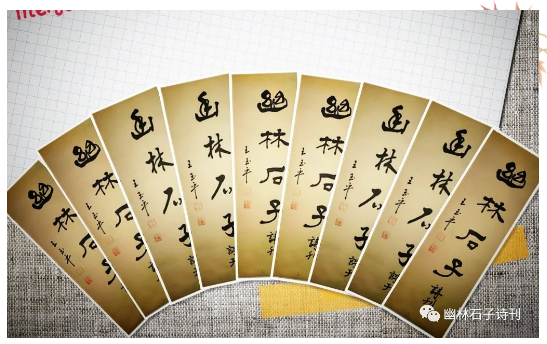 幽林石子
王玉平
幽林石子
王玉平
幽林石子
王玉平
幽林石子
王玉平
幽林石子詩刊
王玉平
幽林石子詩刊
王玉平
幽林石子
王玉平
幽林石子詩刊
王玉平
幽林石子詩刊
王玉平
幽林石子诗刊